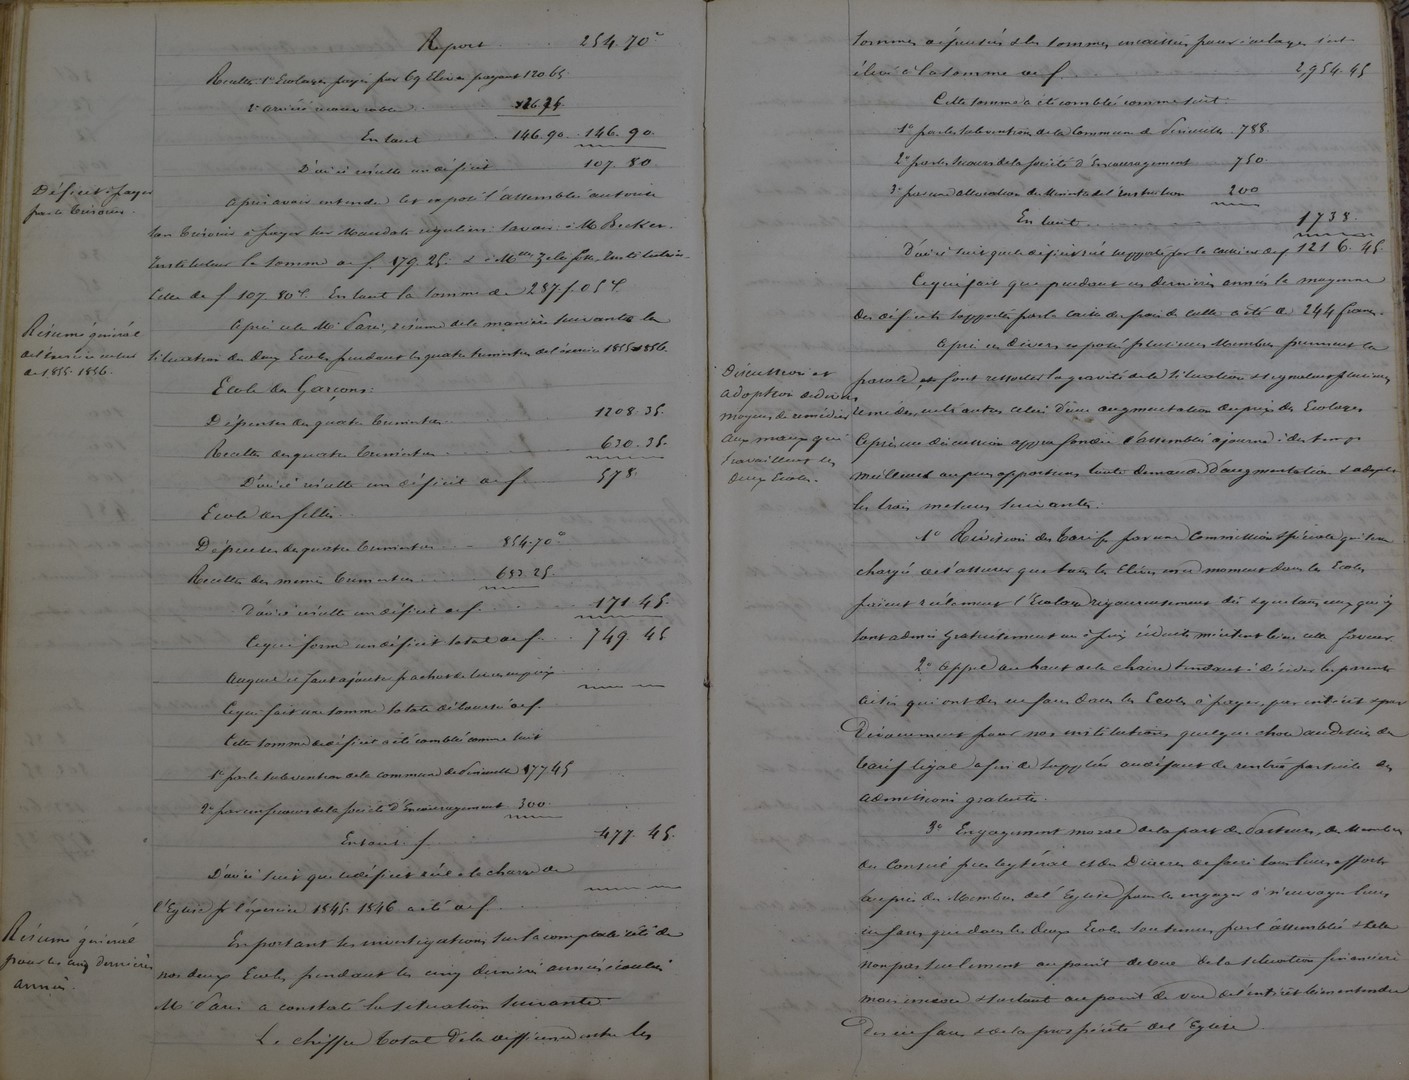 Report 254.70c
Recettes 1° Ecolages payés par 69 Elèves payant 120.65
2° arriéré recouvrable 26.25
En tout 146.90 146.90
D'où il résulte un déficit 107.80
Déficit à payer
par le Trésorier.
Après avoir entendu cet exposé l'assemblée autorise
son Trésorier à payer sur Mandats réguliers: savoir à M. Becker
Instituteur la somme de f. 179.25 & à Mlle Institutrice
celle de f 107.80c. En tout la somme de 287 f. 05c.
Résumé général
de l'exercice
de 1855-1856.
Après cela Mr Paris, résume de la manière suivante la
situation des deux Ecoles pendant les quatre trimestres de l'exercice 1855-1856.
Ecole des Garçons:
Dépenses des quatre trimestres 1208.35
Recettes des quatre trimestres 630.35
D'où il résulte un déficit de f 578
Ecole des filles
Dépenses des quatre trimestres 854.70c
Recettes des mêmes trimestres 683.25
D'où il résulte un déficit de f 171.45
Ce qui forme un déficit total de f 749.45
Auquel il faut ajouter p. achat de livres
Ce qui fait une somme totale déboursée de f
Cette somme de déficit a été comblée comme suit
1° par la subvention de la commune de 177.45
2° par un secours de la Société d'Encouragement 300.
En tout f 477.45
D'où il suit que le déficit réel à la charge de
l'Eglise pr l'exercice 1845-1846 a été de f
Résumé général
pour les cinq dernières
années.
En portant ses investigations sur la comptabilité de
nos deux Ecoles pendant les cinq dernières années écoulées
M. Paris a constaté la situation suivante
Le chiffre total de la différence entre les
sommes dépensées & les sommes encaissées pour écolages s'est
élevé à la somme de f 2,954.45
Cette somme a été comblée comme suit:
1° par les subventions de la Commune de 788
2° par les secours de la Société d'Encouragement 750
3° par une allocation du Ministre de l'Instruction 200
En tout 1738
D'où il suit que le déficit réel supporté par la caisse de f 1216.45
Ce qui fait que pendant ces dernières années la moyenne
des déficits supportés par la caisse des frais de culte a été de 244 francs.
Discussion et
adoption de divers
moyens de remédier
aux maux qui
travaillent les
deux Ecoles.
Après ces divers exposés plusieurs Membres prennent la
parole, font ressortir la gravité de la situation & signalent plusieurs
remèdes, entr'autres celui d'une augmentation du prix des Ecolages
Après une discussion approfondie l'assemblée ajourne à des temps
meilleurs ou plus opportuns toute demande d'augmentation & adopte
les trois mesures suivantes:
1° Révision des tarifs par une Commission spéciale qui sera
chargée de s'assurer que tous les Elèves en ce moment dans les Ecoles
paient réellement l'Ecolage rigoureusement dû & que tous ceux qui y
sont admis gratuitement ou à prix réduits méritent bien cette faveur.
2° Appel du haut de la chaire tendant à décider les parents
aisés qui ont des enfans dans les Ecoles à payer, par intérêt & par
dévouement pour nos institutions quelque chose au dessus du
tarif légal afin de suppléer au défaut de rentrée partielle des
admissions gratuites.
3° Engagement moral de la part des Pasteurs, des Membres
du Conseil presbytéral et des Diacres de faire tous leurs efforts
auprès des Membres de l'Eglise pour les engager à n'envoyer leurs
enfans que dans les deux Ecoles soutenues par l'assemblée & cela
non pas seulement au point de vue de la situation financière
mais encore & surtout au point de vue de l'intérêt bien entendu
des enfans & de la prospérité de l'Eglise.